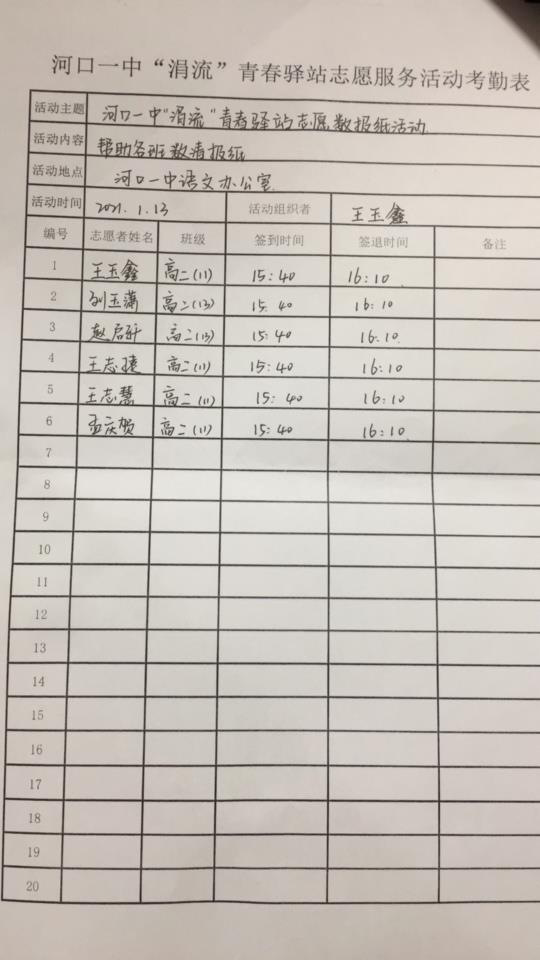 河口一中“涓流”青春驿站志愿服务活动考勤表
活动主题 河口一中“涓流”青春驿站志愿数报纸活动
活动内容 帮助各班数清报纸
活动地点 河口一中语文办公室
活动时间 2021.1.13 活动组织者 王玉鑫
编号 志愿者姓名 班级 签到时间 签退时间 备注
1 王玉鑫 高二(11) 15:40 16:10
2 刘玉潇 高二(13) 15:40 16:10
3 赵启轩 高二(13) 15:40 16:10
4 王志 高二(11) 15:40 16:10
5 王志慧 高二(11) 15:40 16:10
6 孟庆贺 高二(11) 15:40 16:10
7
8
9
10
11
12
13
14
15
16
17
18
19
20